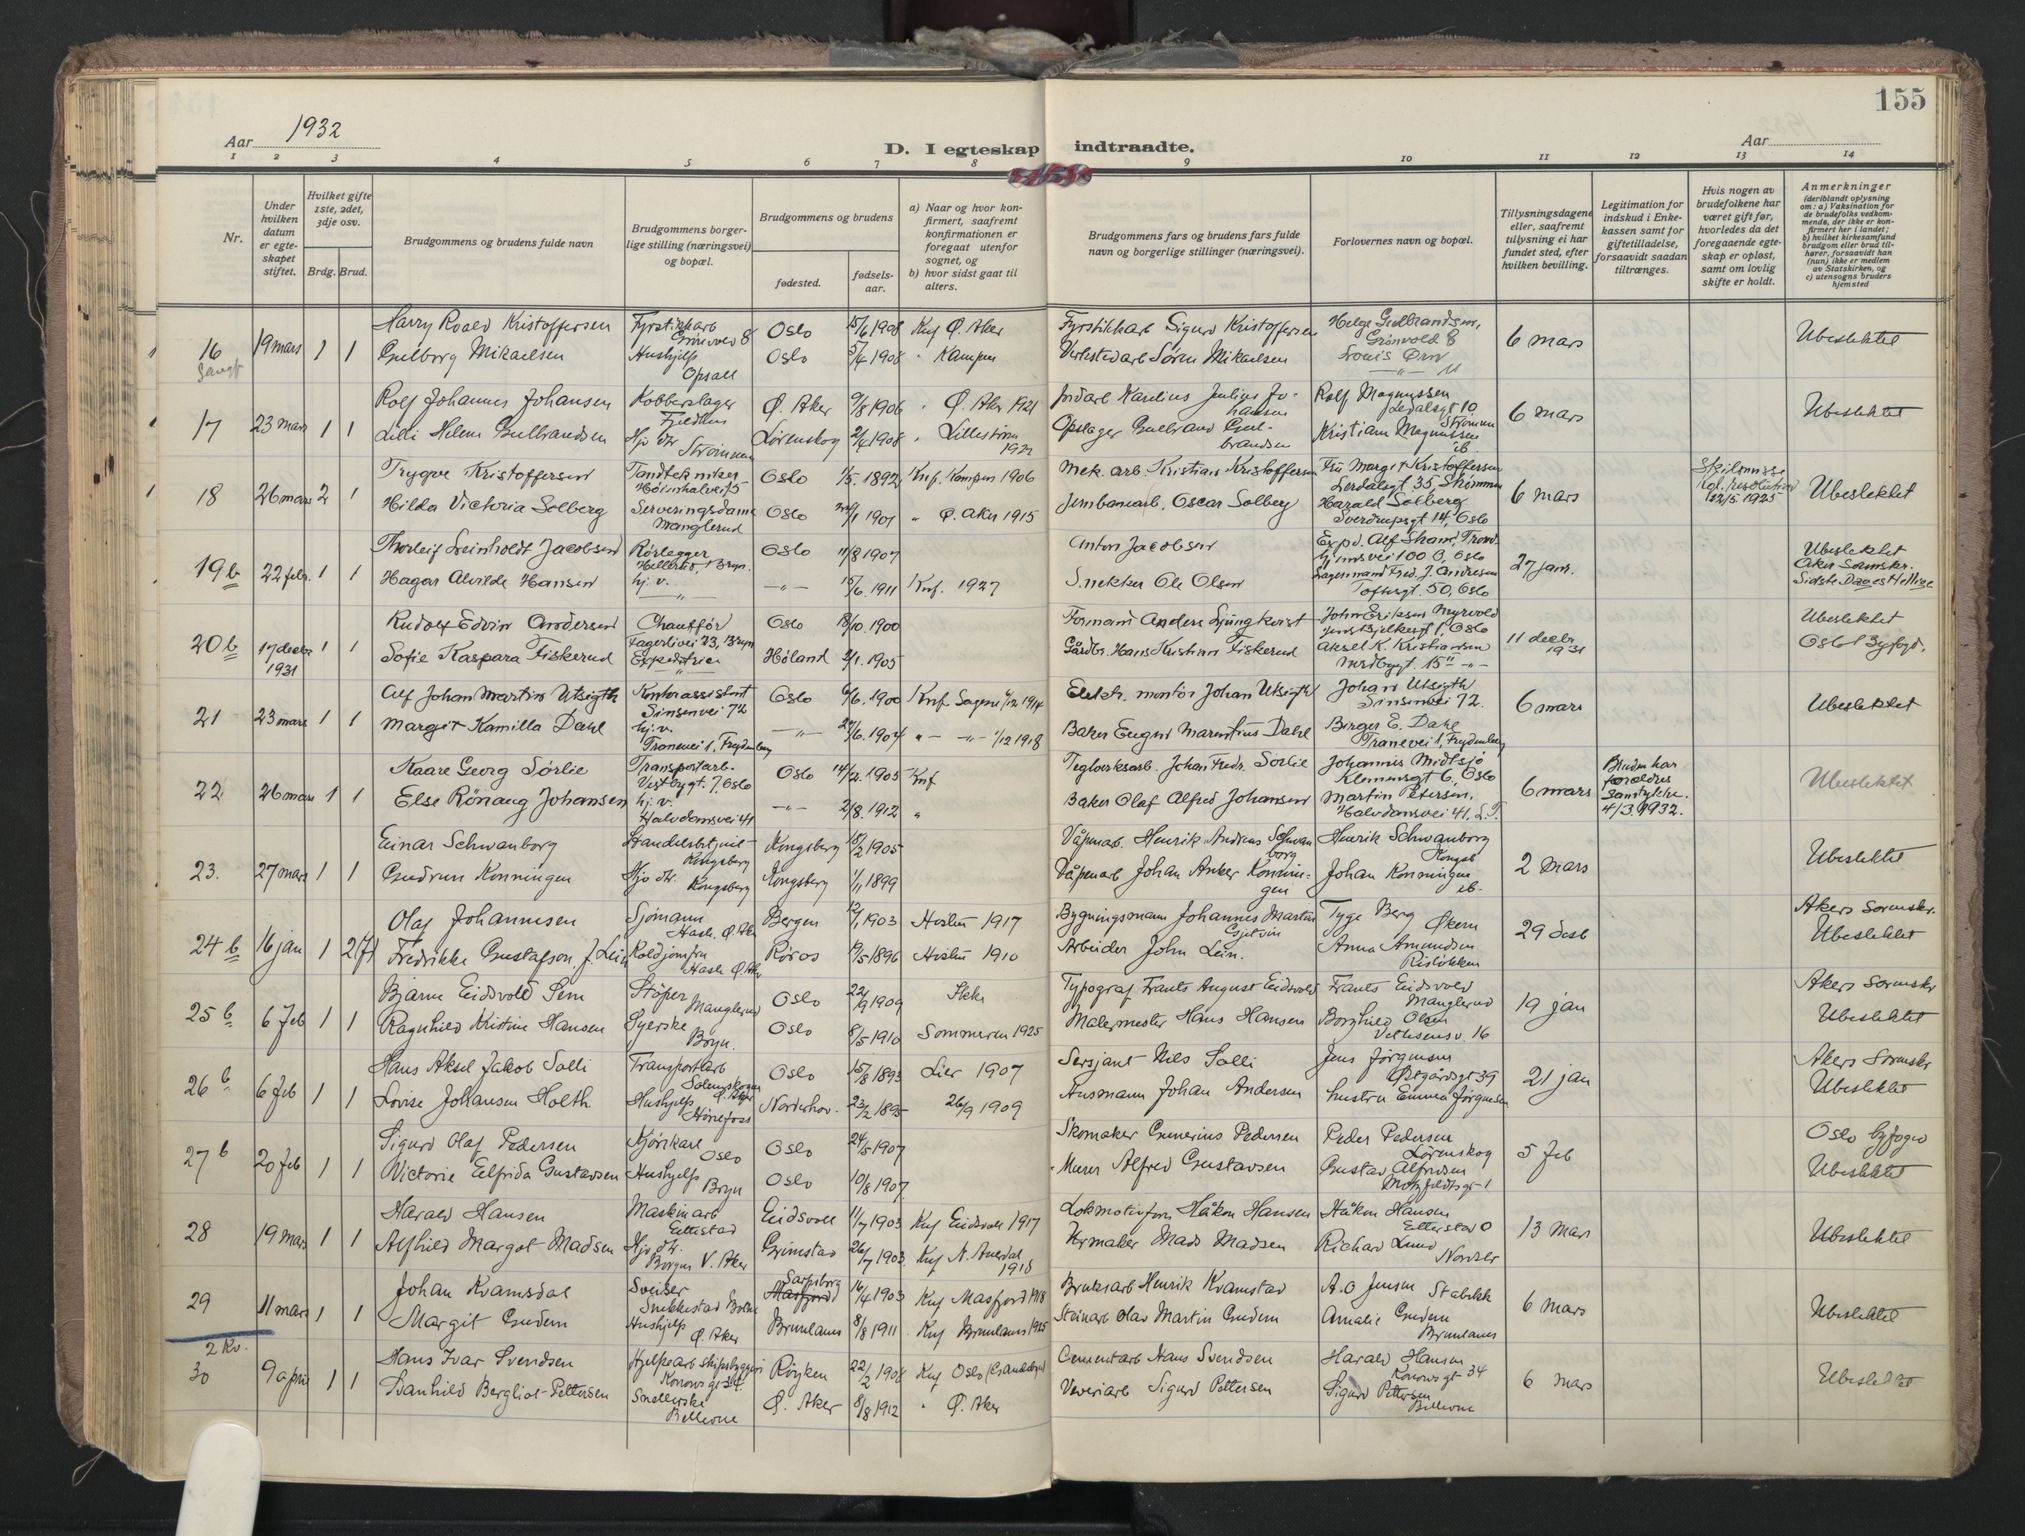 155
Aar 1932
D. I egteskap indtraadte.
Aar
1 2 3 4 5 6 7 8 9 10 11 12 13 14
Nr.
Under hvilken datum er egteskapet stiftet.
Hvilket gifte 1ste, 2det, 3dje osv.
Brdg. Brud.
Brudgommens og brudens fulde navn
Brudgommens borgerlige stilling (næringsvei) og bopæl.
Brudgommens og brudens
fødested.
fødselsaar.
a) Naar og hvor konfirmert, saafremt konfirmationen er foregaat utenfor sognet, og
b) hvor sidst gaat til alters.
Brudgommens fars og brudens fars fulde navn og borgerlige stillinger (næringsvei).
Forlovernes navn og bopæl.
Tillysningsdagene eller, saafremt tillysning ei har fundet sted, efter hvilken bevilling.
Legitimation for indskud i Enkekassen samt for giftetilladelse, forsaavidt saadan tiltrænges.
Hvis nogen av brudefolkene har været gift før, hvorledes da det foregaaende egteskap er opløst, samt om lovlig skifte er holdt.
Anmerkninger (deriblandt oplysning om: a) Vaksination for de brudefolks vedkommende, der ikke er konfirmert her i landet; b) hvilket kirkesamfund brudgom eller brud tilhører, forsaavidt han (hun) ikke er medlem av Statskirken, og c) utensogns bruders hjemsted
Harry Roald Kristoffersen Fyrstikkarb Grönvold 8 Oslo 15/6 1908 Knf Ø. Aker Fyrstikkarb Sigurd Kristoffersen Helge Gulbrandsen, Grönvold 8
16 19 mars 1 1 Gulborg Mikaelsen Hushjelp Opsall Oslo 5/4 1908 " Kampen Verkstedarb Sören Mikaelsen 6 mars Ubeslektet
Rolf Johannes Johansen Kobberslager Ø. Aker 9/8 1906 " Ø. Aker 1921 Jordarb Karelius Julius Johansen Rolf Magnussen
17 23 mars 1 1 Lilli Helene Gulbrandsen Hjv dtr Strömmen Lörenskog 2/4 1908 " Lilleström 1922 Opslager Gulbrand Gulbrandsen Kristian Magnussen ib 6 mars Ubeslektet
Trygve Kristoffersen Tandtekniker Oslo 1/5 1892 Knf. Kampen 1906 Mek. arb Kristian Kristoffersen Fru Margit Kristoffersen Lerdalsgt 35 Strömmen
18 26 mars 2 1 Hilda Victoria Solberg Serveringsdame Manglerud Oslo 1901 " Ø. Aker 1915 Jernbanearb. Oscar Solberg Harald Solberg Sverdrupsgt 14, Oslo 6 mars Skilsmisse Kgl. resolution 12/5 1925 Ubeslektet
Thorleif Leinholdt Jacobsen Rörlegger Oslo 11/8 1907 Anton Jacobsen Exped. Alf Sham, Trondhjemsvei 100 B, Oslo
19 b 22 febr. 1 1 Hagar Alvilde Hansen hj. v. -"- 15/6 1911 Knf. 1927 Snekker Ole Olsen Lagermand Fred. J. Andresen Toftesgt. 50, Oslo 27 janr. Ubeslektet Aker Sorenskr. Sidste Dages Hellige
Rudolf Edvin Andersen Chauffør Fagerlivei 23, Bryn Oslo 18/10 1900 Formann Anders Ljungkvist John Eriksen Myrvold Jens Bjelkesgt 1, Oslo
20 b 17 decbr 1931 1 1 Sofie Kaspara Fiskerud Expeditrice Høland 2/1 1905 Gårdbr. Hans Kristian Fiskerud Aksel K. Kristiansen 11 decbr 1931 Ubeslektet Oslo Byfogd.
Alf Johan Martin Utsigth Kontorassistent Sinsenvei 72 Oslo 6/6 1900 Knf. Sagene 1914 Elektr. montör Johan Utsigth Johan Utsigth Sinsenvei 72.
21 23 mars 1 1 Margit Kamilla Dahl hj. v. Tranevei 1, Frydenberg -"- 27/6 1904 " -"- 1/12 1918 Baker Eugen Marentius Dahl Birger E. Dahl Tranevei 1, Frydenberg 6 mars Ubeslektet
Kaare Georg Sørlie Transportarb. Oslo 14/2 1905 Knf Teglverksarb. Johan Fredr. Sörlie Johannes Midtsjø Klemmsgt 6, Oslo
22 26 mars 1 1 Else Rönaug Johansen hj. v. Halvdansvei 41 -"- 2/8 1912 " Baker Olaf Alfred Johansen Martin Petersen, Halvdansvei 41, L.T. 6 mars Bruden har foreldres samtykke. 4/3 1932. Ubeslektet
Einar Schwanborg Handelsbetjent Kongsberg Kongsberg 18/2 1905 Våpenarb. Henrik Andreas Schwanborg Henrik Schwanborg Kongsb
23. 27 mars 1 1 Gudrun Konningen Hjv dtr. Kongsberg Kongsberg 1/11 1899 Våpenarb Johan Anker Konningen Johan Konningen ib. 2 mars Ubeslektet
Olaf Johannesen Sjömann Hasle, Ø. Aker Bergen 12/1 1903 Hvaler 1917 Bygningsmann Johannes Martin Gjetvin Tyge Berg Økern
24 b 16 jan 1 2(?) Fredrikke Gustafson f. Lein Koldjomfru Hasle Ø. Aker Röros 19/5 1896 Hvaler 1910 Arbeider John Lein. Anna Amundsen Risløkken 29 desb Akers Sorenskr. Ubeslektet
Bjarne Eidsvold Sem Stöper Manglerud Oslo 22/9 1909 Ikke Typograf Frants August Eidsvold Frants Eidsvold Manglerud
25 b 6 feb 1 1 Ragnhild Kristine Hansen Syerske Bryn. Oslo 8/5 1910 Sommeren 1925 Malermester Hans Hansen Borghild Olsen Vetlesensv. 16 19 jan Akers Sorenskr Ubeslektet
Hans Aksel Jakob Solli Transportarb Oslo 15/8 1893 Lier 1907 Sersjant Nils Solli Jens Jörgensen Østgårdsgt 39
26 b 6 feb 1 1 Lovise Johansen Holth Hushjelp Hönefoss Norderhov. 23/2 1895 26/9 1909 Ansmann Johan Andersen hustru Emma Jörgensen 21 jan Akers Sorenskr Ubeslektet
Sigurd Olaf Pedersen Kjörekarl Oslo Oslo 24/5 1907 Skomaker Gunerius Pedersen Peder Pedersen Lörenskog
27 b 20 feb 1 1 Victorie Elfrida Gustavsen Hushjelp Bryn Oslo 10/8 1907 Murer Alfred Gustavsen Gustav Alfredsen Motzfeldtsgt 1 5 feb Oslo byfogd Ubeslektet
Harald Hansen Maskinarb Etterstad Eidsvoll 11/7 1903 Knf Eidsvoll 1917 Lokomotivform Håkon Hansen Håkon Hansen Etterstad
28 19 mars 1 1 Alfhild Margot Madsen Hjv dtr. Borgen V. Aker Grimstad 26/7 1903 Knf N. Aurdal 1918 Urmaker Mads Madsen Richard Lund Nordser 13 mars Ubeslektet
Johan Kvamsdal Sveiser Sarpsborg Masfjord 16/4 1903 Knf Masfjord 1918 Bruksarb Henrik Kvamstad A.O Jensen Stabekk
29 11 mars 1 1 Margit Gudem Hushjelp Ø. Aker Brunlanes 8/8 1911 Knf Brunlanes 1925 Steinarb Olav Martin Gudem Amalie Gudem Brunlanes 6 mars Ubeslektet
2 Kv.
Hans Ivar Svendsen Hjelpearb skipsbyggeri Konowsgt 34 Röyken 22/2 1908 Knf Oslo Cementarb Hans Svendsen Harald Hansen Konowsgt 34
30 9 april 1 1 Svanhild Bergliot Pettersen Snellerske Bellevue Ø. Aker 8/8 1912 " Ø. Aker Veveriarb Sigurd Pettersen Sigurd Pettersen Bellevue 6 mars Ubeslektet